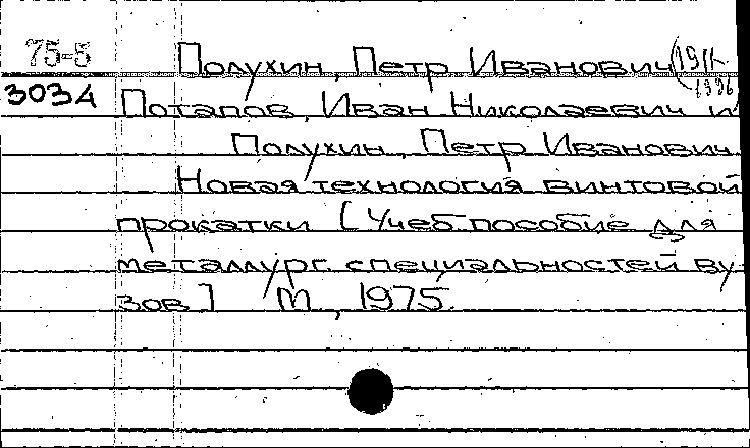 75-5 Полухин, Петр Иванович (1911-
1996
3034 Потапов, Иван Николаевич и
Полухин, Петр Иванович
Новая технология винтовой
прокатки [Учеб. пособие для
металлург. специальностей ву-
зов] М, 1975.